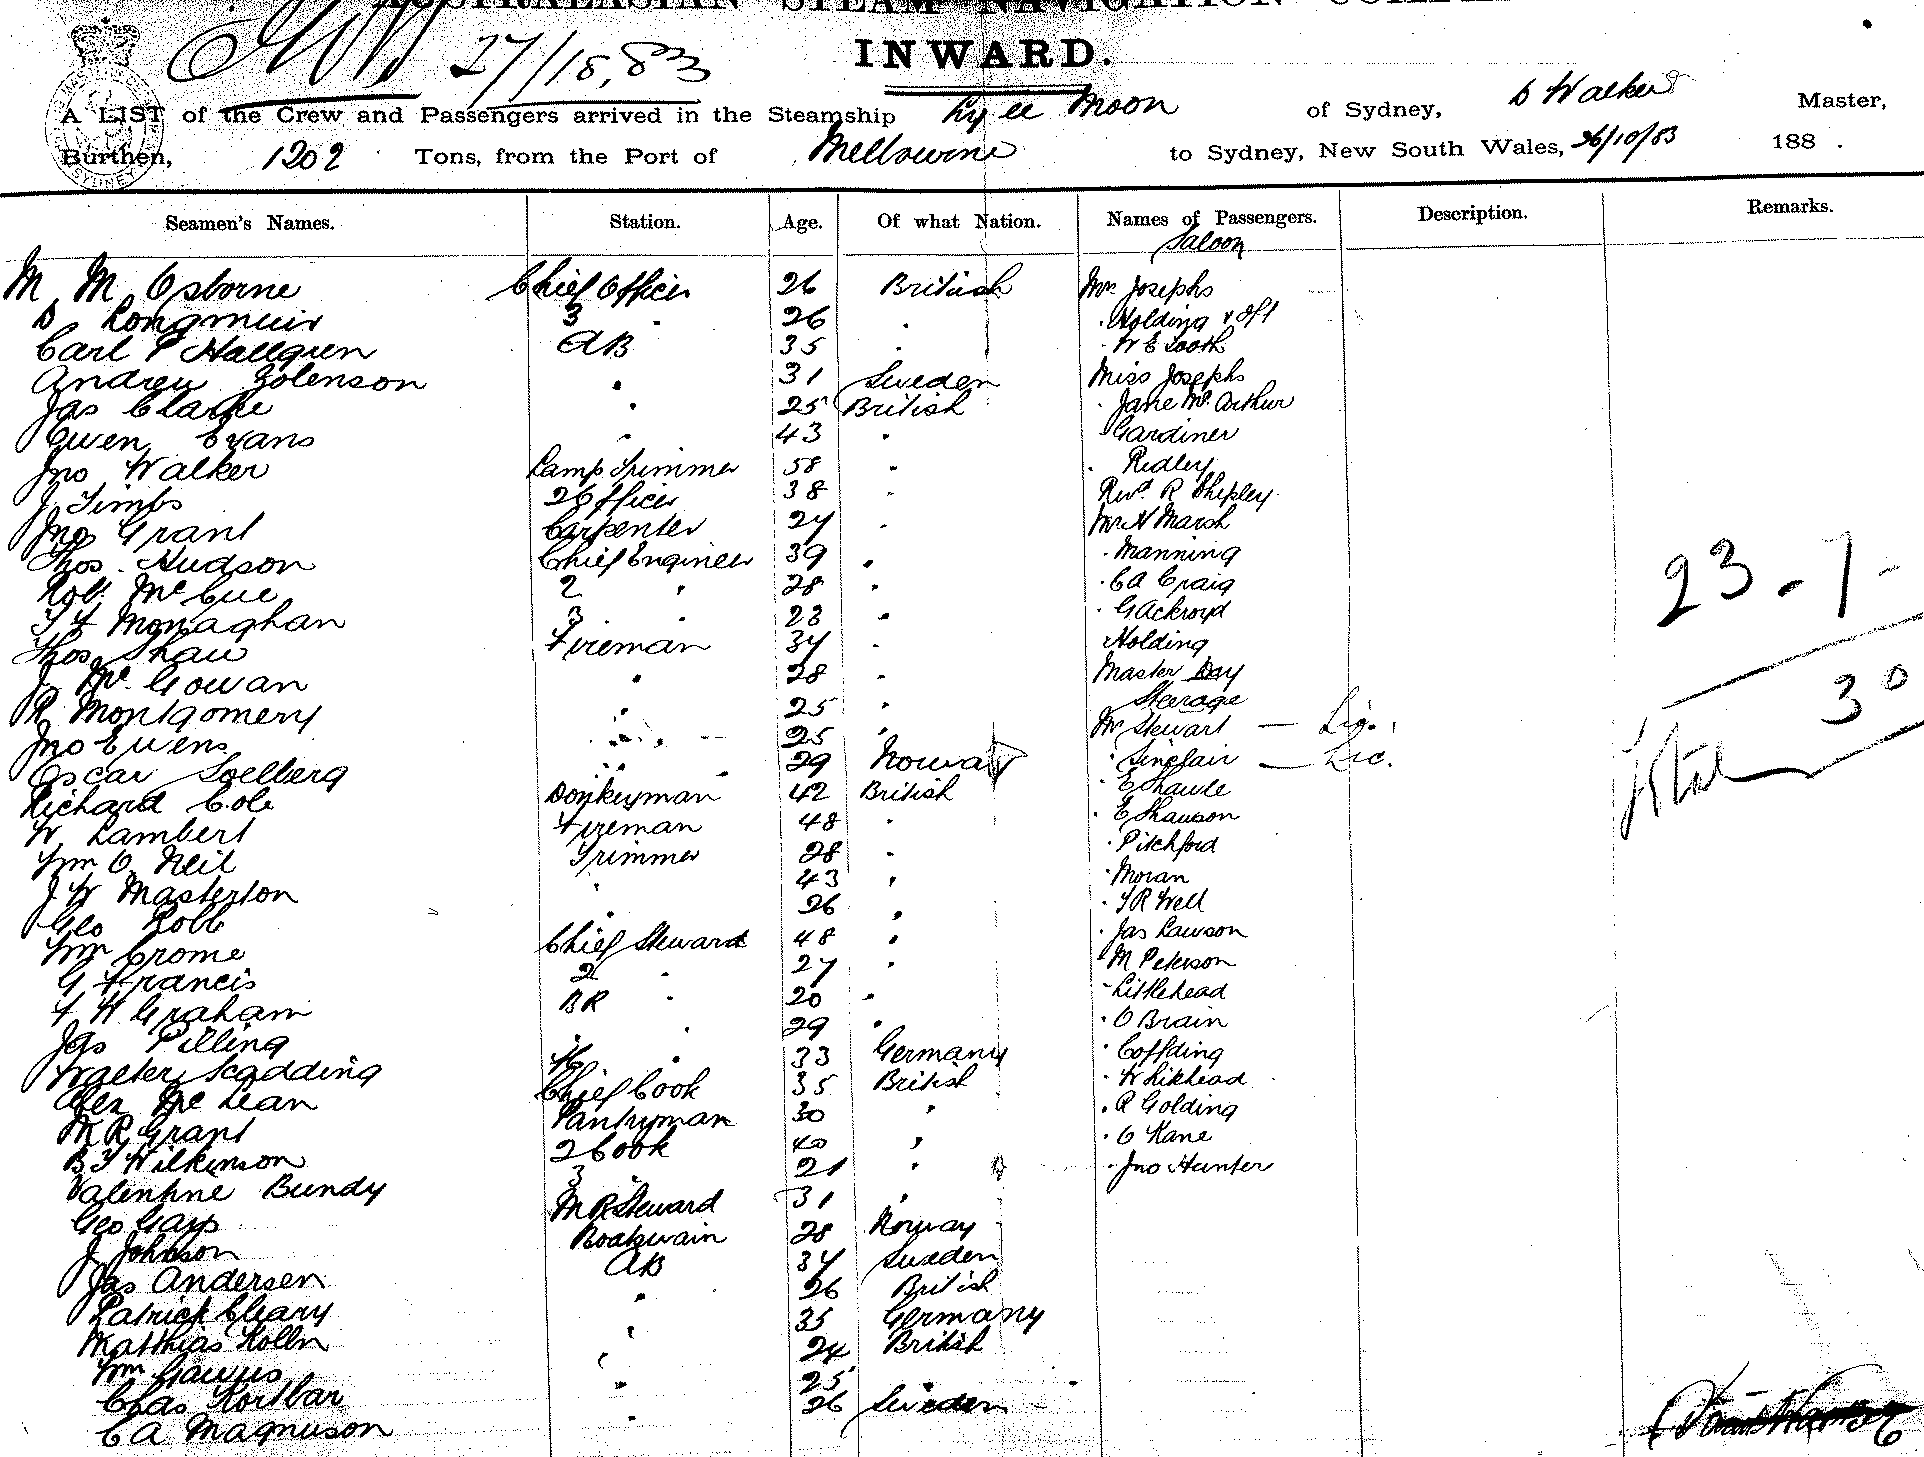 AUSTRALASIAN STEAM NAVIGATION
27/10.83
INWARD.
A LIST of the Crew and Passengers arrived in the Steamship Ly ee Moon of Sydney, D Walker Master,
Burthen, 1202 Tons, from the Port of Melbourne to Sydney, New South Wales, 26/10/83 188 .
Seamen's Names. Station. Age. Of what Nation. Names of Passengers. Description. Remarks.
Saloon
M M Osborne Chief Officer 26 British Mrs Josephs
D Longmuir 3 " 26 " " Holding
Carl P Hallgren AB 35 " " W E Tooth
Andrew 31 Sweden Miss Josephs
Jas Clarke " 25 British " Jane Mc Arthur
Owen Evans " 43 " " Gardiner
Jno Walker Lamp Trimmer 58 " " Ridley
J Timbs 2 Officer 38 " Revd R Shepley
Jno Grant Carpenter 27 " Mr H Marsh
Thos. Hudson Chief Engineer 39 " " Manning
Robt McCue 2 " 28 " " C A Craig
T F Monaghan 3 " 23 " " G Ackroyd
Thos Shaw Fireman 34 " Holding
J Mc Gowan " 28 " Master Day
Sterage
R Montgomery " 25 " Mr Stewart
Jno Ewens " 25 " " Sinclair
Oscar Soelberg " 29 Norway " E
Richard Cole Donkeyman 42 British " E
W Lambert Fireman 48 " " Pitchford
Wm O Neil Trimmer 28 " " Moran
J W Masterton " 43 " " T R Well
Geo Robb " 26 " " Jas Lawson
Wm Crome Chief Steward 48 " " M Peterson
G Francis 2 " 27 " " Littlehead
F H Graham BR " 20 " " O Brain
Jas Pilling " 29 " " Coffding
Walter Scadding " 33 Germany " Whitehead
Alex McLean Chief Cook 35 British " R Golding
M R Grant Pantryman 30 " " O Kane
B T Wilkinson 2 Cook 40 " " Jno Hunter
Valentine Bundy 3 " 21 "
Geo Gays M R Steward 31 "
J Johnson Boatswain 28 Norway
Jas Andersen AB 34 Sweden
Patrick Cleary " 26 British
Matthias Kolln " 35 Germany
Wm " 24 British
Chas " 25 "
C A Magnuson " 26 Sweden
23 . 7
30
Total